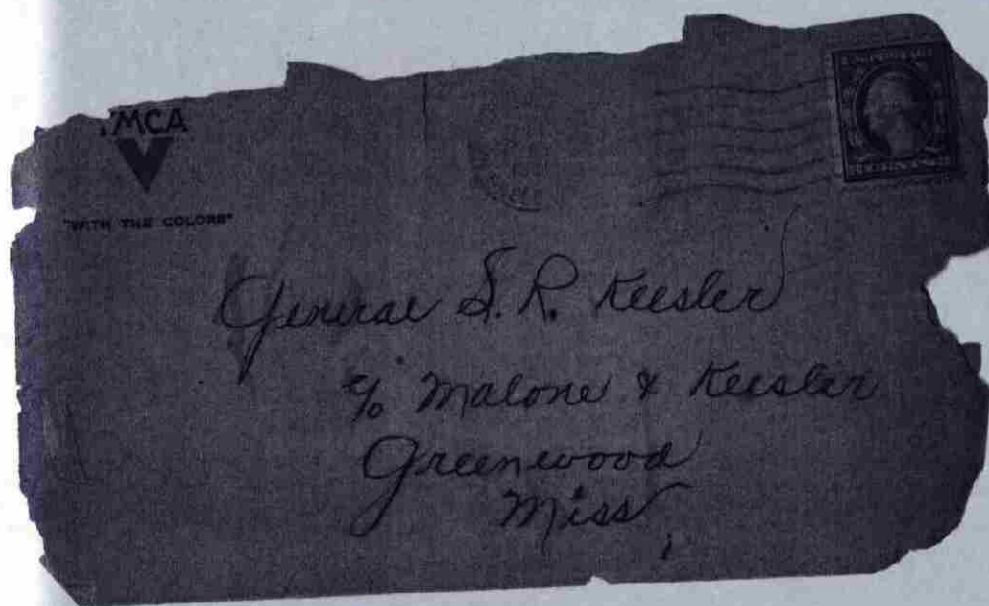 YMCA
"WITH THE COLORS"
General S. R. Keesler
c/o Malone & Keesler
Greenwood
Miss